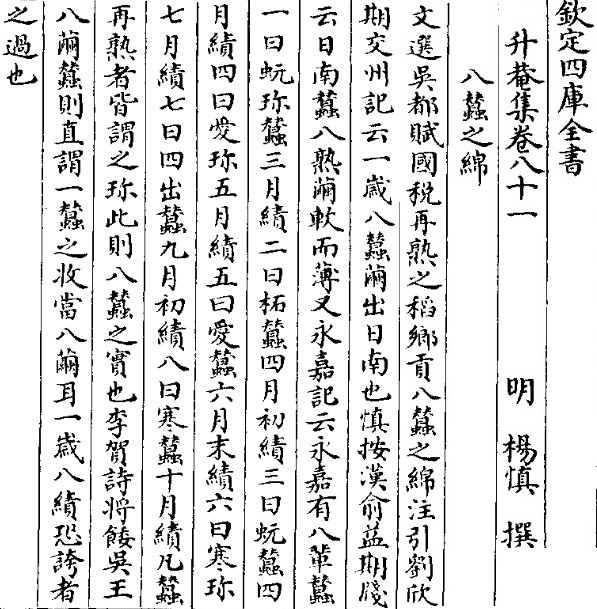 欽定四庫全書
升菴集卷八十一
明 楊慎 撰
八蠶之綿
文選吳都賦國稅再熟之稻鄉貢八蠶之綿注引劉欣
期交州記云一歲八蠶繭出日南也慎按漢俞益期牋
云日南蠶八熟繭軟而薄又永嘉記云永嘉有八輩蠶
一曰蚖珍蠶三月績二曰柘蠶四月初績三曰蚖蠶四
月績四曰愛珍五月績五曰愛蠶六月末績六曰寒珍
七月績七曰四出蠶九月初績八曰寒蠶十月績凡蠶
再熟者皆謂之珍此則八蠶之實也李賀詩將餧吳王
八繭蠶則直謂一蠶之收當八繭耳一歲八績恐誇者
之過也